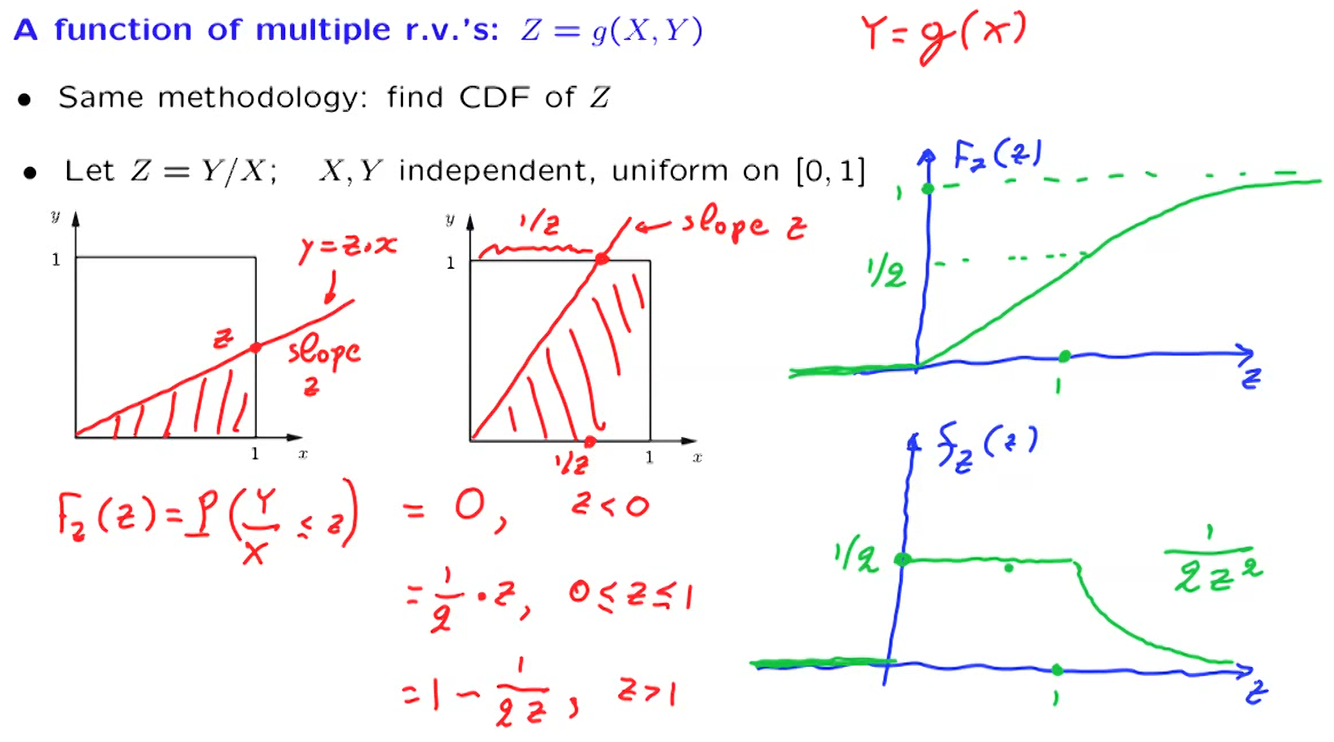 A function of multiple r.v.'s: Z = g(X, Y)
Y = g(x)
• Same methodology: find CDF of Z
• Let Z = Y/X; X, Y independent, uniform on [0, 1]
y
1
y = z·x
z
slope
z
1
x
y
1/z
slope z
1
1/z
1
x
F_Z(z)
1
1/2
1
z
F_Z(z) = P(Y/X ≤ z) = 0, z < 0
= 1/2 · z, 0 ≤ z ≤ 1
= 1 − 1/(2z), z > 1
f_Z(z)
1/2
1/(2z²)
1
z